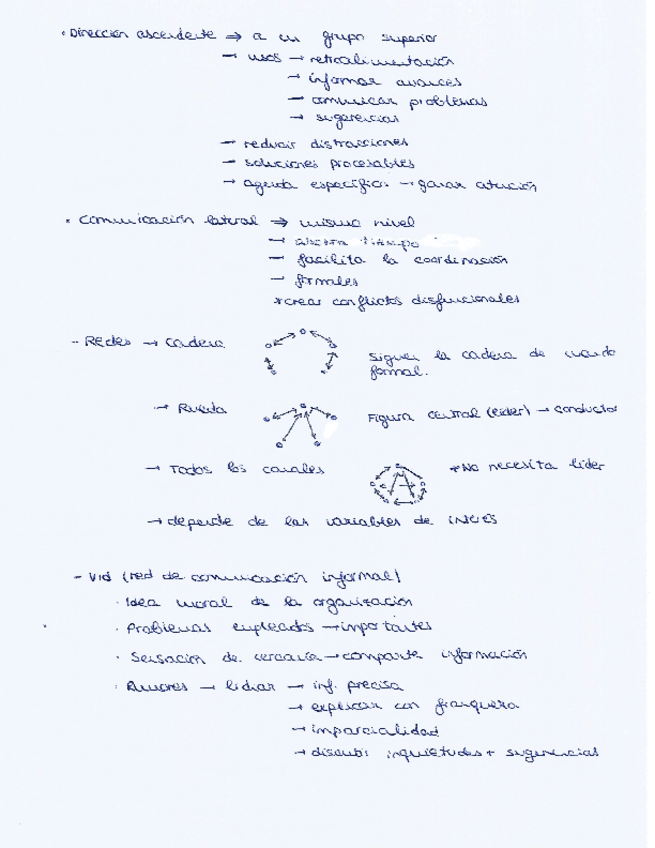 · Dirección ascendente ⇒ a un grupo superior
→ usos → retroalimentación
→ informar avances
→ comunicar problemas
→ sugerencias
→ reducir distracciones
→ soluciones procesables
→ agenda específica → ganar atención
· Comunicación lateral ⇒ mismo nivel
→ ahorra tiempo
→ facilita la coordinación
→ formales
*crear conflictos disfuncionales
- Redes → Cadena Siguen la cadena de mando
formal.
→ Rueda Figura central (líder) → conductor
→ Todos los canales *No necesita líder
→ depende de las variables de interés
- Vid (red de comunicación informal)
· Idea moral de la organización
· Problemas empleados → importantes
· Sensación de cercanía → comparte información
· Rumores → lidiar → inf. precisa
→ explicar con franqueza
→ imparcialidad
→ discutir inquietudes + sugerencias